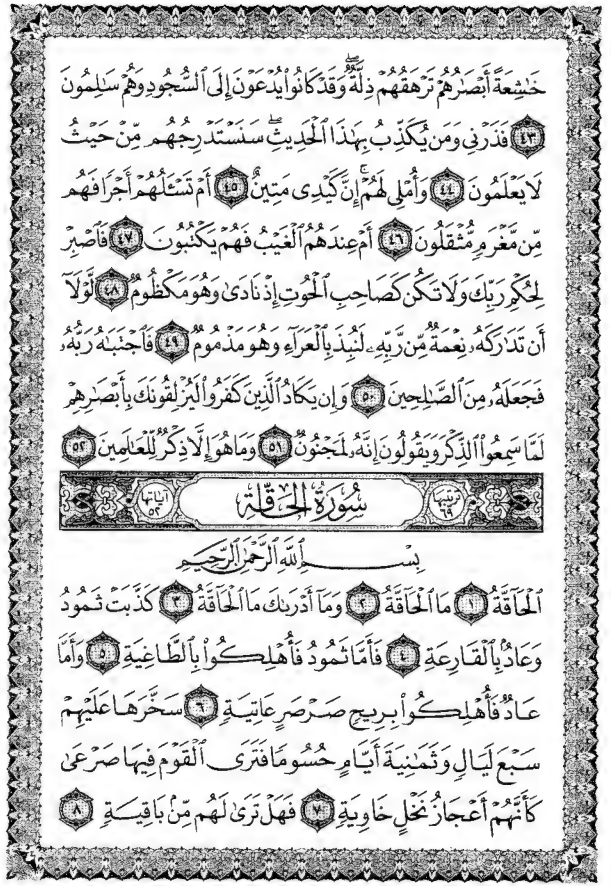 خَٰشِعَةً أَبۡصَٰرُهُمۡ تَرۡهَقُهُمۡ ذِلَّةٞۖ وَقَدۡ كَانُواْ يُدۡعَوۡنَ إِلَى ٱلسُّجُودِ وَهُمۡ سَٰلِمُونَ
٤٣ فَذَرۡنِي وَمَن يُكَذِّبُ بِهَٰذَا ٱلۡحَدِيثِۖ سَنَسۡتَدۡرِجُهُم مِّنۡ حَيۡثُ
لَا يَعۡلَمُونَ ٤٤ وَأُمۡلِي لَهُمۡۚ إِنَّ كَيۡدِي مَتِينٌ ٤٥ أَمۡ تَسۡـَٔلُهُمۡ أَجۡرٗا فَهُم
مِّن مَّغۡرَمٖ مُّثۡقَلُونَ ٤٦ أَمۡ عِندَهُمُ ٱلۡغَيۡبُ فَهُمۡ يَكۡتُبُونَ ٤٧ فَٱصۡبِرۡ
لِحُكۡمِ رَبِّكَ وَلَا تَكُن كَصَاحِبِ ٱلۡحُوتِ إِذۡ نَادَىٰ وَهُوَ مَكۡظُومٞ ٤٨ لَّوۡلَآ
أَن تَدَٰرَكَهُۥ نِعۡمَةٞ مِّن رَّبِّهِۦ لَنُبِذَ بِٱلۡعَرَآءِ وَهُوَ مَذۡمُومٞ ٤٩ فَٱجۡتَبَٰهُ رَبُّهُۥ
فَجَعَلَهُۥ مِنَ ٱلصَّٰلِحِينَ ٥٠ وَإِن يَكَادُ ٱلَّذِينَ كَفَرُواْ لَيُزۡلِقُونَكَ بِأَبۡصَٰرِهِمۡ
لَمَّا سَمِعُواْ ٱلذِّكۡرَ وَيَقُولُونَ إِنَّهُۥ لَمَجۡنُونٞ ٥١ وَمَا هُوَ إِلَّا ذِكۡرٞ لِّلۡعَٰلَمِينَ ٥٢
ترتيبها ٦٩ سُورَةُ الحَاقَّة آياتها ٥٢
بِسۡمِ ٱللَّهِ ٱلرَّحۡمَٰنِ ٱلرَّحِيمِ
ٱلۡحَآقَّةُ ١ مَا ٱلۡحَآقَّةُ ٢ وَمَآ أَدۡرَىٰكَ مَا ٱلۡحَآقَّةُ ٣ كَذَّبَتۡ ثَمُودُ
وَعَادُۢ بِٱلۡقَارِعَةِ ٤ فَأَمَّا ثَمُودُ فَأُهۡلِكُواْ بِٱلطَّاغِيَةِ ٥ وَأَمَّا
عَادٞ فَأُهۡلِكُواْ بِرِيحٖ صَرۡصَرٍ عَاتِيَةٖ ٦ سَخَّرَهَا عَلَيۡهِمۡ
سَبۡعَ لَيَالٖ وَثَمَٰنِيَةَ أَيَّامٍ حُسُومٗا فَتَرَى ٱلۡقَوۡمَ فِيهَا صَرۡعَىٰ
كَأَنَّهُمۡ أَعۡجَازُ نَخۡلٍ خَاوِيَةٖ ٧ فَهَلۡ تَرَىٰ لَهُم مِّنۢ بَاقِيَةٖ ٨